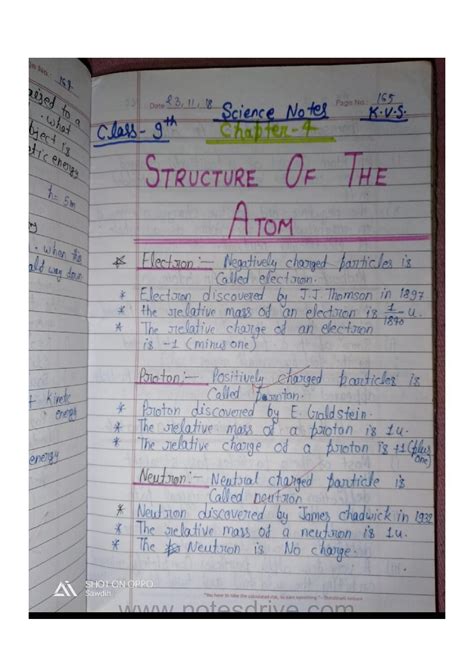 No.: 164
Date 23, 11, 18
Page No.: 165
Science Notes
K.V.S.
Class- 9th
Chapter-4
STRUCTURE OF THE
ATOM
* Electron:- Negatively charged particles is
Called electron.
* Electron discovered by J.J Thomson in 1897
* the relative mass of an electron is 1/1840 u.
* The relative charge of an electron
is -1 (minus one)
Proton:- Positively charged particles is
Called Proton.
* Proton discovered by E. Goldstein.
* The relative mass of a proton is 1u.
* The relative charge of a proton is +1 (plus
one)
Neutron:- Neutral charged particle is
Called neutron
* Neutron discovered by James chadwick in 1932
* The relative mass of a neutron is 1u.
* The Neutron is No charge.
to a
what
ject is
tic energy
h = 5m
when the
Kinetic
energy
energy
SHOT ON OPPO
www.notesdrive.com